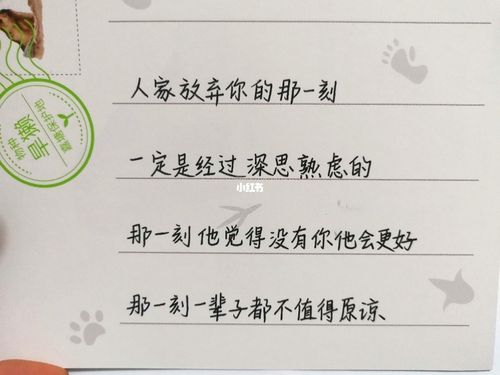 人家放弃你的那一刻
一定是经过深思熟虑的
小红书
那一刻他觉得没有你他会更好
那一刻一辈子都不值得原谅
物种
旱獭